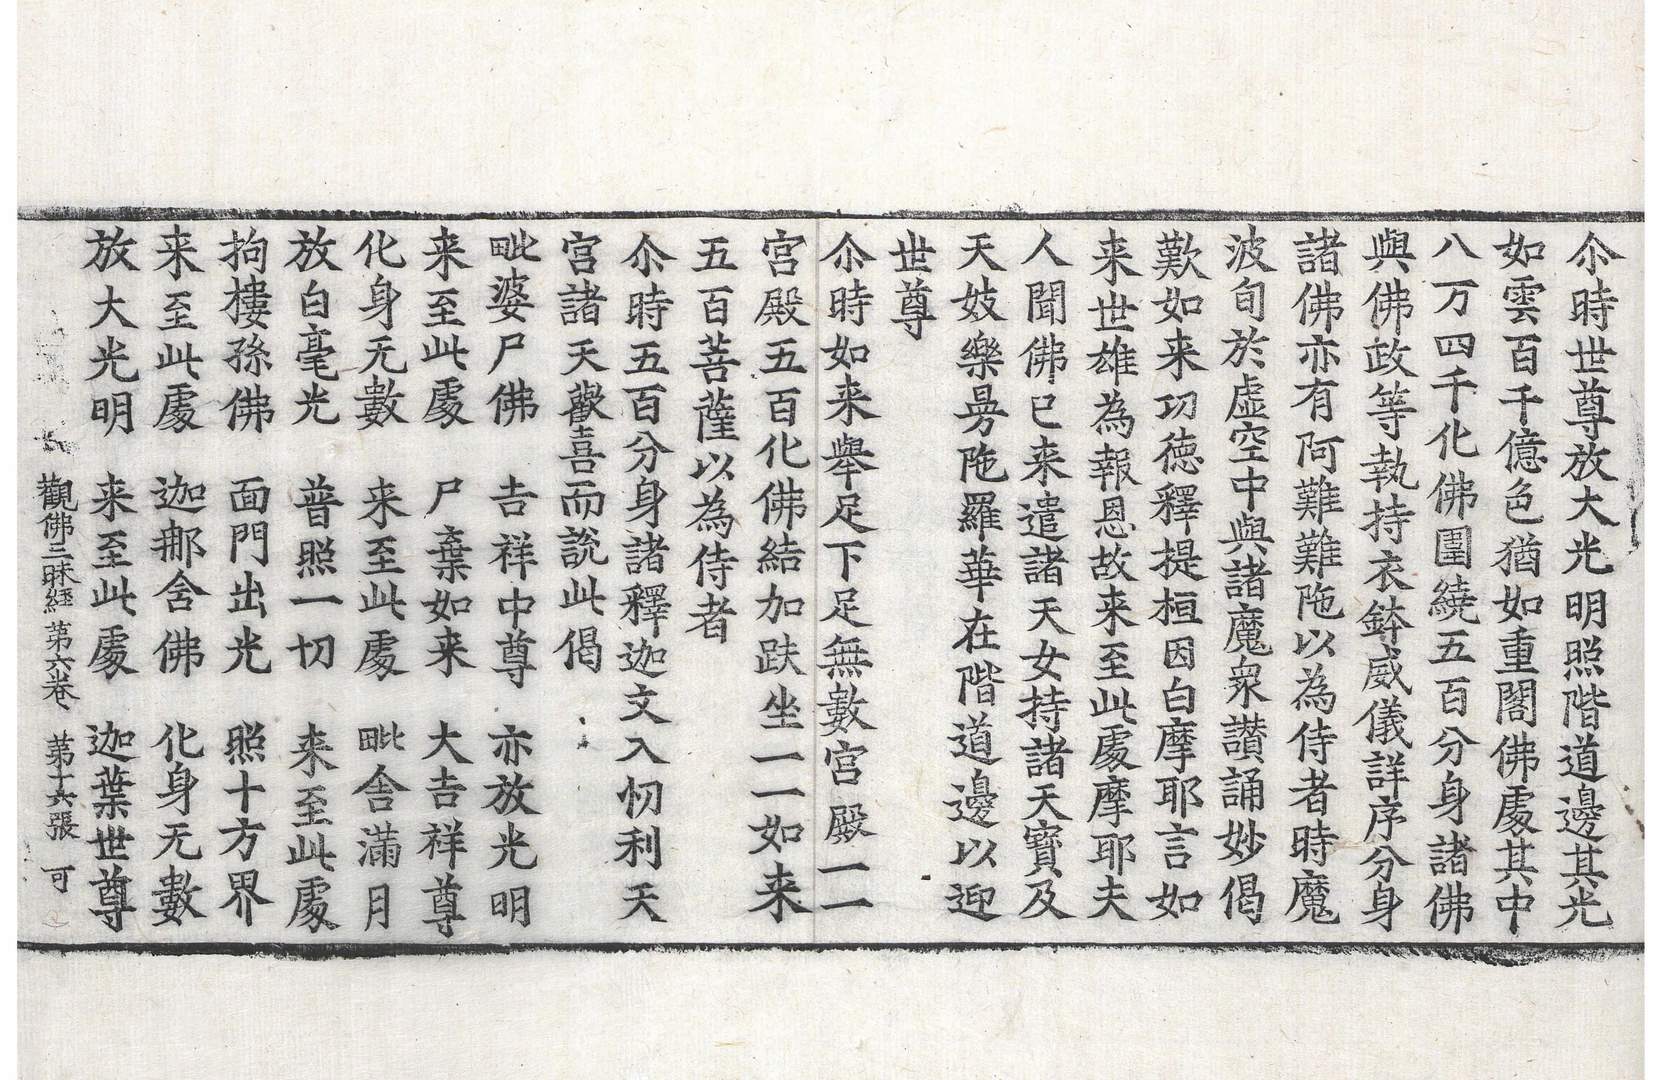 尒時世尊放大光明照階道邊其光
如雲百千億色猶如重閣佛處其中
八万四千化佛圍繞五百分身諸佛
與佛政等執持衣鉢威儀詳序分身
諸佛亦有阿難難陁以為侍者時魔
波旬於虛空中與諸魔衆讃誦妙偈
歎如来功徳釋提桓因白摩耶言如
来世雄為報恩故来至此處摩耶夫
人聞佛已来遣諸天女持諸天寶及
天妓樂曼陁羅華在階道邊以迎
世尊
尒時如来舉足下足無數宮殿一一
宮殿五百化佛結加趺坐一一如来
五百菩薩以為侍者
尒時五百分身諸釋迦文入忉利天
宮諸天歡喜而說此偈
毗婆尸佛 吉祥中尊 亦放光明
来至此處 尸棄如来 大吉祥尊
化身无數 来至此處 毗舍滿月
放白毫光 普照一切 来至此處
拘樓孫佛 面門出光 照十方界
来至此處 迦那舍佛 化身无數
放大光明 来至此處 迦葉世尊
觀佛三昧経第六卷 第十六張 可